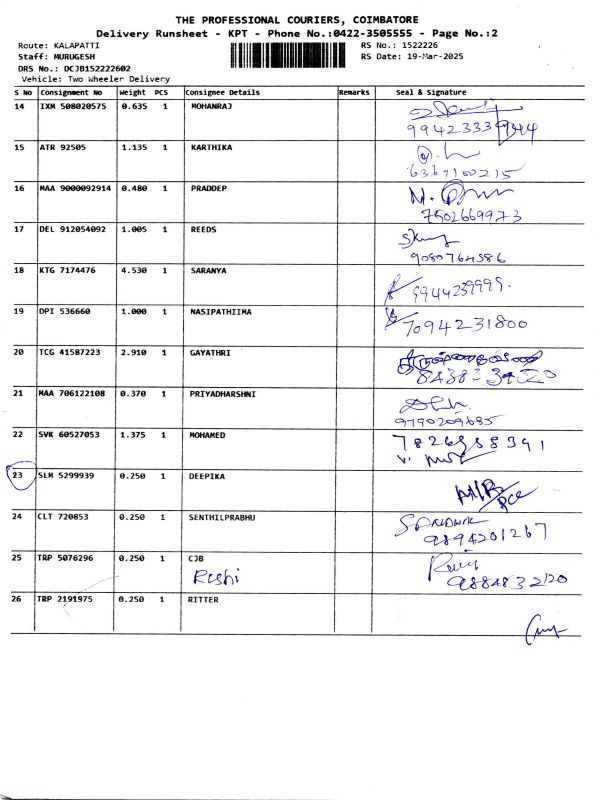 THE PROFESSIONAL COURIERS, COIMBATORE
Delivery Runsheet - KPT - Phone No.:0422-3505555 - Page No.:2
Route: KALAPATTI RS No.: 1522226
Staff: MURUGESH RS Date: 19-Mar-2025
DRS No.: DCJB152222602
Vehicle: Two Wheeler Delivery
S No Consignment No Weight PCS Consignee Details Remarks Seal & Signature
14 IXM 508020575 0.635 1 MOHANRAJ
15 ATR 92505 1.135 1 KARTHIKA
6367100215
16 MAA 9000092914 0.480 1 PRADDEP
7502669973
17 DEL 912054092 1.005 1 REEDS
9080764586
18 KTG 7174476 4.530 1 SARANYA
9944239999.
19 DPI 536660 1.000 1 NASIPATHIIMA
7094231800
20 TCG 41587223 2.910 1 GAYATHRI
21 MAA 706122108 0.370 1 PRIYADHARSHNI
9790209685
22 SVK 60527053 1.375 1 MOHAMED
23 SLM 5299939 0.250 1 DEEPIKA
24 CLT 720853 0.250 1 SENTHILPRABHU
9894201267
25 TRP 5076296 0.250 1 CJB
Rishi
26 TRP 2191975 0.250 1 RITTER